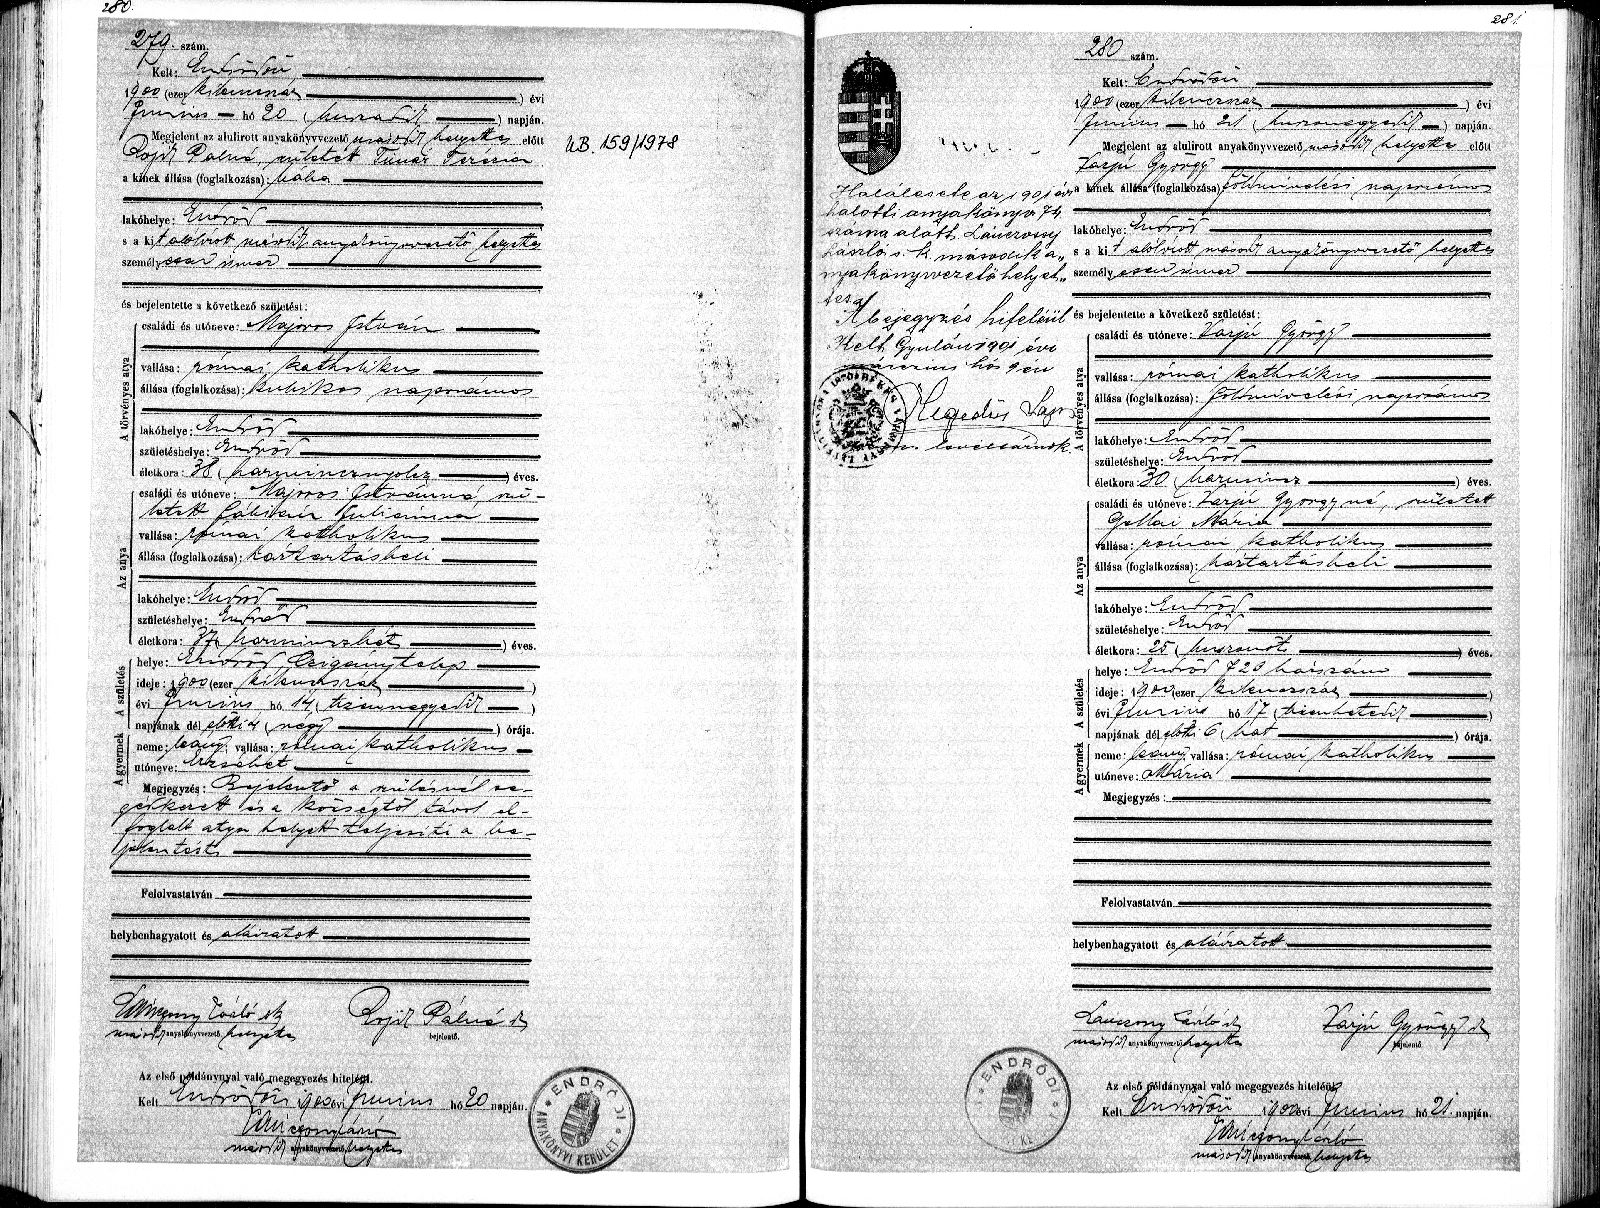 280.
279. szám.
Kelt: Endrődön
1900 (ezer kilenczszáz) évi
Junius hó 20 (huszadik) napján.
Megjelent az alulirott anyakönyvvezető másodk helyettes előtt
Rojik Pálné, született Timár Terézia
a kinek állása (foglalkozása): bába
lakóhelye: Endrőd
s a kit alólirott másodk anyakönyvvezető helyettes
személyesen ismer
és bejelentette a következő születést:
A törvényes atya
családi és utóneve: Majoros István
vallása: római katholikus
állása (foglalkozása): kubikos napszámos
lakóhelye: Endrőd
születéshelye: Endrőd
életkora: 38 (harmincznyolcz) éves.
Az anya
családi és utóneve: Majoros Istvánné, szü-
letett Fábián Juliánná
vallása: római katholikus
állása (foglalkozása): háztartásbeli
lakóhelye: Endrőd
születéshelye: Endrőd
életkora: 37 (harminczhét) éves.
A születés
helye: Endrőd, Czigánytelep
ideje: 1900 (ezer kilenczszáz)
évi Junius hó 14 (tizennegyedik)
napjának dél előtti 4 (négy) órája.
A gyermek
neme: leány; vallása: római katholikus
utóneve: Erzsébet
Megjegyzés: Bejelentő a szülésnél se-
gédkezett és a községtől távol el-
foglalt atya helyett teljesíti a be-
jelentést
Felolvastatván
helybenhagyatott és aláiratott
Lánczony László sk
másodk anyakönyvvezető helyettes
Rojik Pálné sk
bejelentő.
Az első példánynyal való megegyezés hiteléül.
Kelt Endrődön 1900 évi Junius hó 20 napján.
másodk anyakönyvvezető helyettes
ENDRŐDI
ANYAKÖNYVI KERÜLET
UB. 159/1978
281.
280 szám.
Kelt: Endrődön
1900 (ezer kilenczszáz) évi
Junius hó 21 (huszonegyedik) napján.
Megjelent az alulirott anyakönyvvezető másodk helyettes előtt
Varjú György
a kinek állása (foglalkozása): földmivelési napszámos
lakóhelye: Endrőd
s a kit alólirott másodk anyakönyvvezető helyettes
személyesen ismer
és bejelentette a következő születést:
A törvényes atya
családi és utóneve: Varjú György
vallása: római katholikus
állása (foglalkozása): földmivelési napszámos
lakóhelye: Endrőd
születéshelye: Endrőd
életkora: 30 (harmincz) éves.
Az anya
családi és utóneve: Varjú Györgyné, született
Gellai Mária
vallása: római katholikus
állása (foglalkozása): háztartásbeli
lakóhelye: Endrőd
születéshelye: Endrőd
életkora: 25 (huszonöt) éves.
A születés
helye: Endrőd 729 házszám
ideje: 1900 (ezer kilenczszáz)
évi Junius hó 17 (tizenhetedik)
napjának dél előtti 6 (hat) órája.
A gyermek
neme: leány; vallása: római katholikus
utóneve: Mária
Megjegyzés:
Felolvastatván
helybenhagyatott és aláiratott
másodk anyakönyvvezető helyettes
Varjú György sk
bejelentő
Az első példánynyal való megegyezés hiteléül.
Kelt Endrődön 1900 évi Junius hó 21. napján.
másodk anyakönyvvezető helyettes
ENDRŐDI
Halálesete az 1901 évi
halotti anyakönyv 74
száma alatt. Lánczony
László s. k. második a„
nyakönyvvezető helyet„
tes.
A bejegyzés hiteléül
Kelt Gyulán 1901 évi
márczius hó 9 én
Hegedüs Lajos